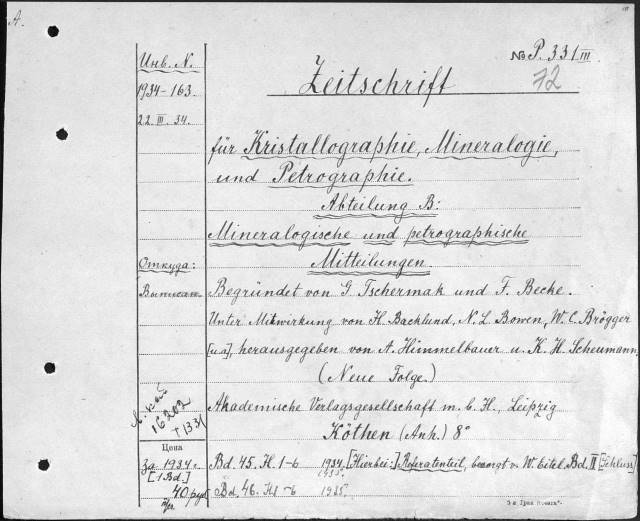 A.
№ P. 331 III
72
Инв. N.
1934-163.
22. III. 34.
Zeitschrift
für Kristallographie, Mineralogie,
und Petrographie.
Abteilung B:
Mineralogische und petrographische
Mitteilungen.
Откуда:
Выписан
Begründet von G. Tschermak und F. Becke.
Unter Mitwirkung von H. Backlund, N. L. Bowen, W. C. Brögger
[u.a], herausgegeben von A. Himmelbauer u. K. H. Scheumann,
(Neue Folge.)
16202
T 1331
Akademische Verlagsgesellschaft m. b. H., Leipzig
Köthen (Anh.) 8°
Цена
За 1934 г.
[1 Bd.]
40 руб
Bd. 45. H. 1-6 1934, [Hierbei:] Referatenteil, besorgt v. W. Eitel. Bd. II [Schluss]
1935.
Bd. 46. H1-6 1935.